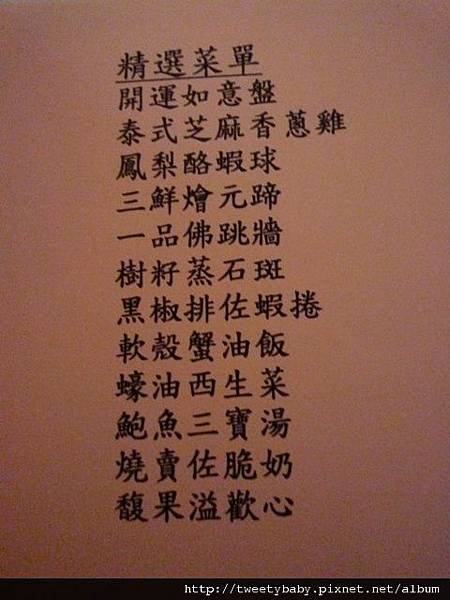 精選菜單
開運如意盤
泰式芝麻香蔥雞
鳳梨酪蝦球
三鮮燴元蹄
一品佛跳牆
樹籽蒸石斑
黑椒排佐蝦捲
軟殼蟹油飯
蠔油西生菜
鮑魚三寶湯
燒賣佐脆奶
馥果溢歡心
http://tweetybaby.pixnet.net/album